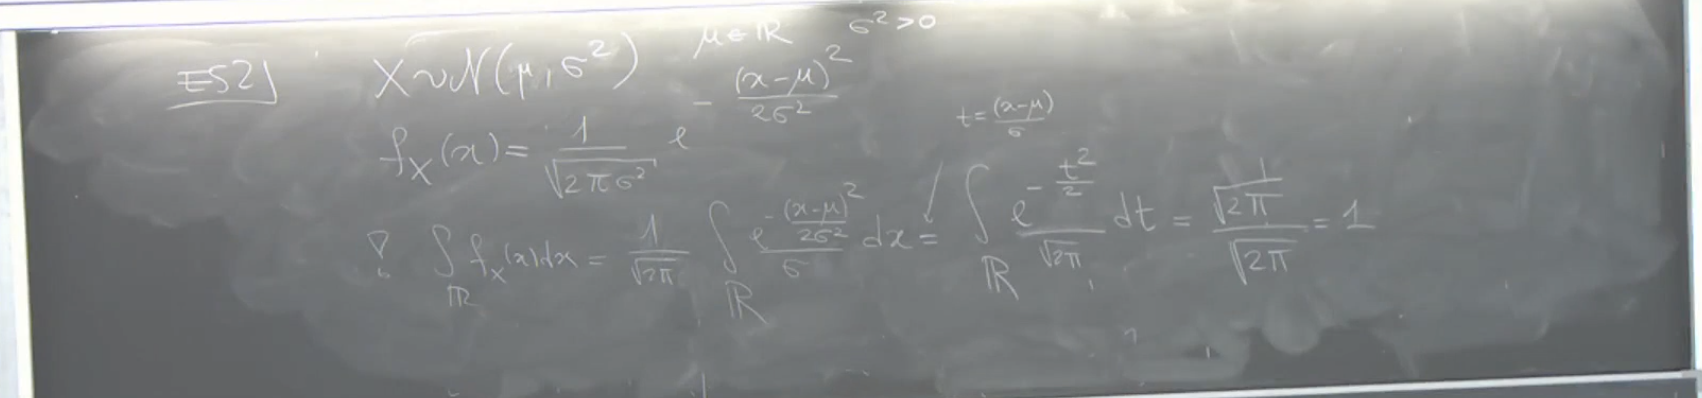 ES2] X ∼ N(μ, σ²) μ ∈ ℝ σ² > 0
f_X(x) = 1/√(2πσ²) e^{-(x-μ)²/(2σ²)} t = (x-μ)/σ
∫_ℝ f_X(x)dx = 1/√(2π) ∫_ℝ e^{-(x-μ)²/(2σ²)}/σ dx = ∫_ℝ e^{-t²/2}/√(2π) dt = √(2π)/√(2π) = 1